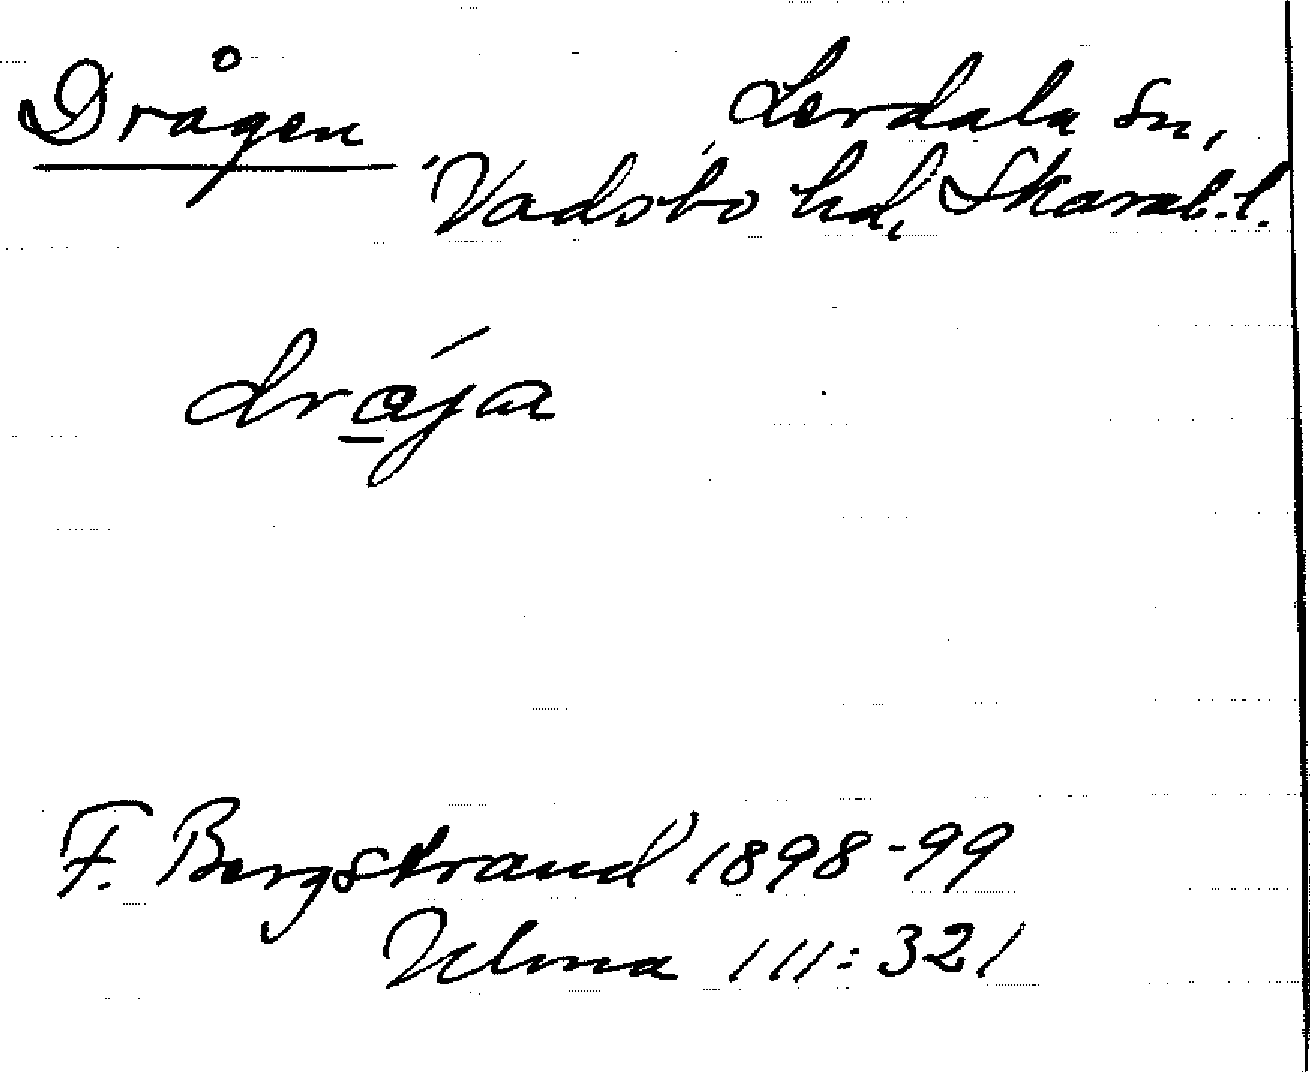 Drågen Lerdala sn,
Vadsbo hd, Skarab.l.
dråja
F. Bergstrand 1898-99
Ulma 111:321